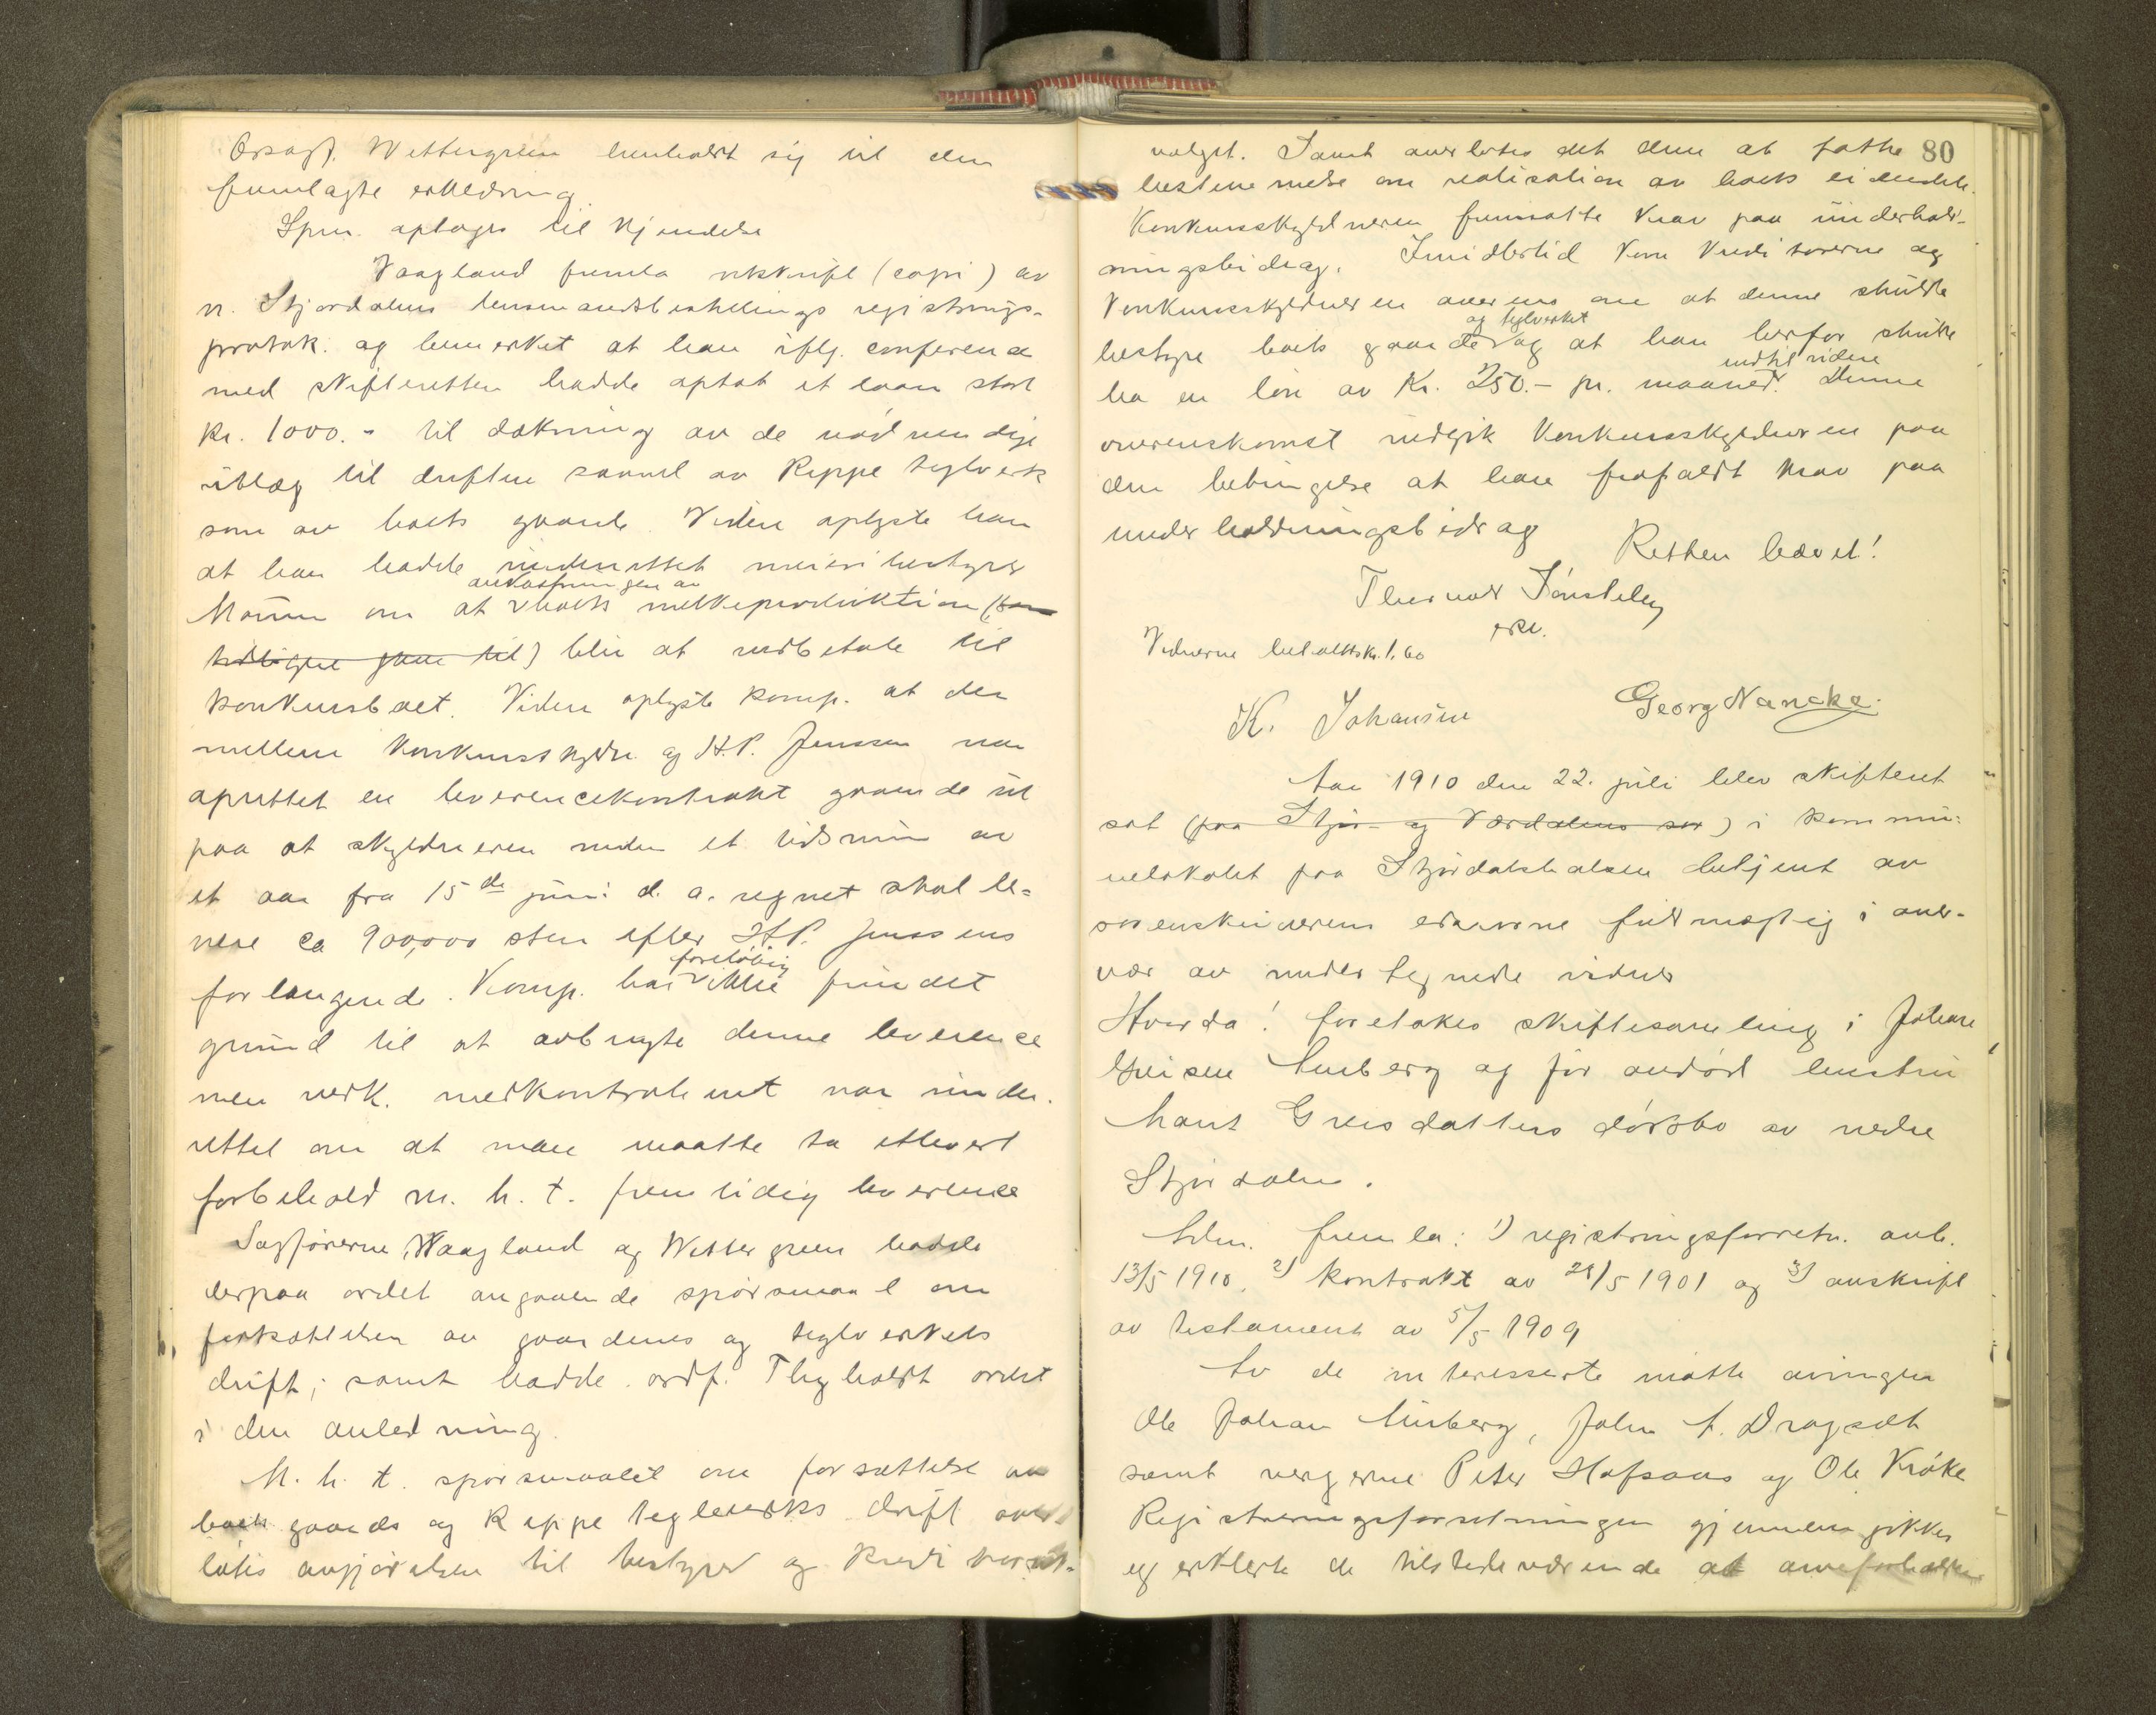 Orsagf. Wettergreen henholdt sig til den
fremlagte erklæring.
Spm. optages til kjendelse
Vaagland fremla utskrift (copi) av
n. Stjørdalens lensmandsbestillings registrings-
protok. og bemerket at han iflg. conference
med skifteretten hadde optat et laan stort
kr. 1000.- til dækning av de nødvendige
utlæg til driften saavel av Reppe teglverk
som av boets gaarde. Videre oplyste han
at han hadde underrettet meieribestyrer
Momm om at boets melkeproduktion (
tidligere) blir at indbetale til
konkursboet. Videre oplyste komp. at der
mellem konkursskyldn. og H.P. Jenssen var
oprettet en leverencekontrakt gaaende ut
paa at skyldneren inden et tidsrum av
et aar fra 15de juni d. a. regnet skal le-
vere ca 900,000 sten efter H.P. Jenssens
foreløbig
forlangende. Komp. har ikke fundet
grund til at avbryte denne leverence
men vedk. medkontrahent var under-
rettet om at man maatte ta ethvert
forbehold m. h. t. fremtidig leverence
Sagførerne Vaagland og Wettergreen hadde
derpaa ordet angaaende spørsmaal om
fortsættelsen av gaardenes og teglverkets
drift; samt hadde ordf. Thyholdt ordet
i den anledning.
M. h. t. spørsmaalet om forsættelse av
boets gaards og Reppe teglverks drift over-
lates avgjørelsen til bestyrer og kreditorut-
80
valget. Samt overlates det dem at fatte
bestemmelse om realisation av boets eiendele.
Konkursskyldneren fremsatte krav paa underhold-
ningsbidrag. Imidlertid kom kreditorerne og
konkursskyldneren overens om at denne skulde
og teglverket
bestyre boets gaarde og at han herfor skulde
indtil videre
ha en løn av Kr. 250.- pr. maaned. Denne
overenskomst indgik konkursskyldneren paa
den betingelse at han frafaldt krav paa
underholdningsbidrag
Retten hævet!
Vidnerne betaltes kr. 1.60
K. Johansen
Georg Nancke.
Aar 1910 den 22. juli blev skifteret
sat (paa Stjør- og Værdalens sor) i kommu-
nelokalet paa Stjørdalshalsen betjent av
sorenskriverens edsvorne fuldmægtig i over-
vær av undertegnede vidner
Hvorda! foretokes skiftesamling i Johan
og før avdød hustru
Marit Greisdatters dødsbo av nedre
Stjørdalen.
Adm. fremla: 1) registringsforretn. avh.
13/5 1910. 2) kontrakt av 28/5 1901 og 3) avskrift
av testament av 5/5 1909
Av de interesserte møtte arvingen
Ole Johan Aunberg, John A. Dragsæt
samt vergerne Peter Hofsaas og Ole Krøke
Registreringsforretningen gjennemgikkes
og erklærte de tilstedeværende at arveforholdene